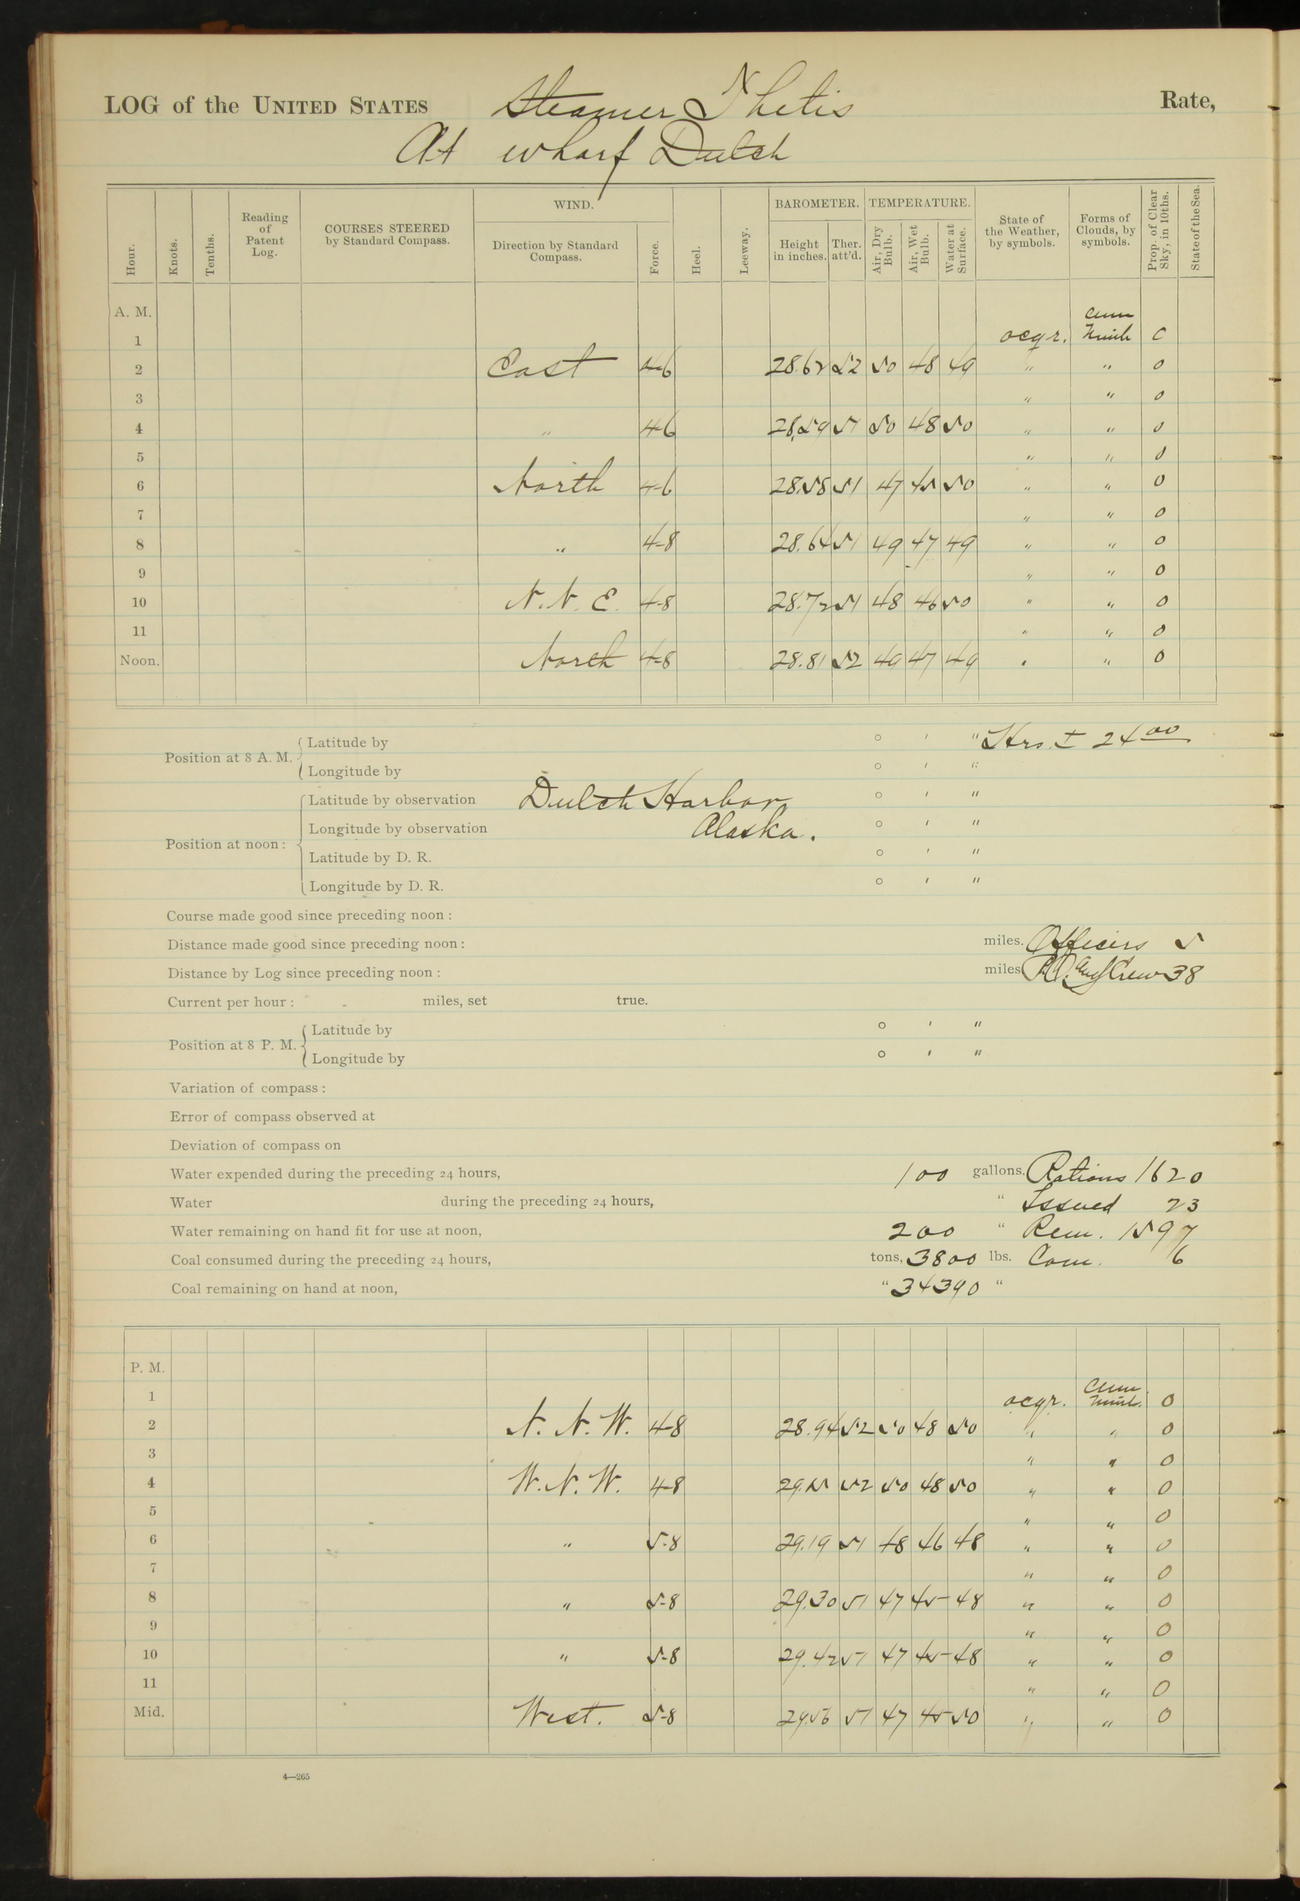 LOG of the UNITED STATES Steamer Thetis Rate,
At wharf Dutch
Hour. Knots. Tenths. Reading of Patent Log. COURSES STEERED by Standard Compass. WIND. Direction by Standard Compass. Force. Heel. Leeway. BAROMETER. Height in inches. Ther. att'd. TEMPERATURE. Air, Dry Bulb. Air, Wet Bulb. Water at Surface. State of the Weather, by symbols. Forms of Clouds, by symbols. Prop. of Clear Sky, in 10ths. State of the Sea.
A. M.
1 ocqr. Cum Nimb 0
2 East 4-6 28.62 52 50 48 49 " " 0
3 " " 0
4 " 4-6 28.59 51 50 48 50 " " 0
5 " " 0
6 North 4-6 28.58 51 47 45 50 " " 0
7 " " 0
8 " 4-8 28.64 51 49 47 49 " " 0
9 " " 0
10 N. N. E. 4-8 28.72 51 48 46 50 " " 0
11 " " 0
Noon. North 4-8 28.81 52 49 47 49 " " 0
Position at 8 A. M. Latitude by ° ' " Hrs. I 24 00
Longitude by ° ' "
Position at noon: Latitude by observation Dutch Harbor ° ' "
Longitude by observation Alaska. ° ' "
Latitude by D. R. ° ' "
Longitude by D. R. ° ' "
Course made good since preceding noon:
Distance made good since preceding noon: miles. Officers 5
Distance by Log since preceding noon: miles P.O. and Crew 38
Current per hour: miles, set true.
Position at 8 P. M. Latitude by ° ' "
Longitude by ° ' "
Variation of compass:
Error of compass observed at
Deviation of compass on
Water expended during the preceding 24 hours, 100 gallons. Rations 1620
Water during the preceding 24 hours, " Issued 23
Water remaining on hand fit for use at noon, 200 " Rem. 1597
Coal consumed during the preceding 24 hours, tons, 3800 lbs. Com. 6
Coal remaining on hand at noon, " 34390 "
P. M.
1 ocqr. Cum. Nimb. 0
2 N. N. W. 4-8 28.94 52 50 48 50 " " 0
3 " " 0
4 W. N. W. 4-8 52 50 48 50 " " 0
5 " " 0
6 " 5-8 29.19 51 48 46 48 " " 0
7 " " 0
8 " 5-8 29.30 51 47 45 48 " " 0
9 " " 0
10 " 5-8 29.42 51 47 45 48 " " 0
11 " " 0
Mid. West. 5-8 29.56 51 47 45 50 " " 0
4—265